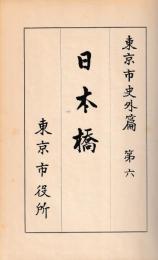 東京市史外篇 第六
日本橋
東京市役所